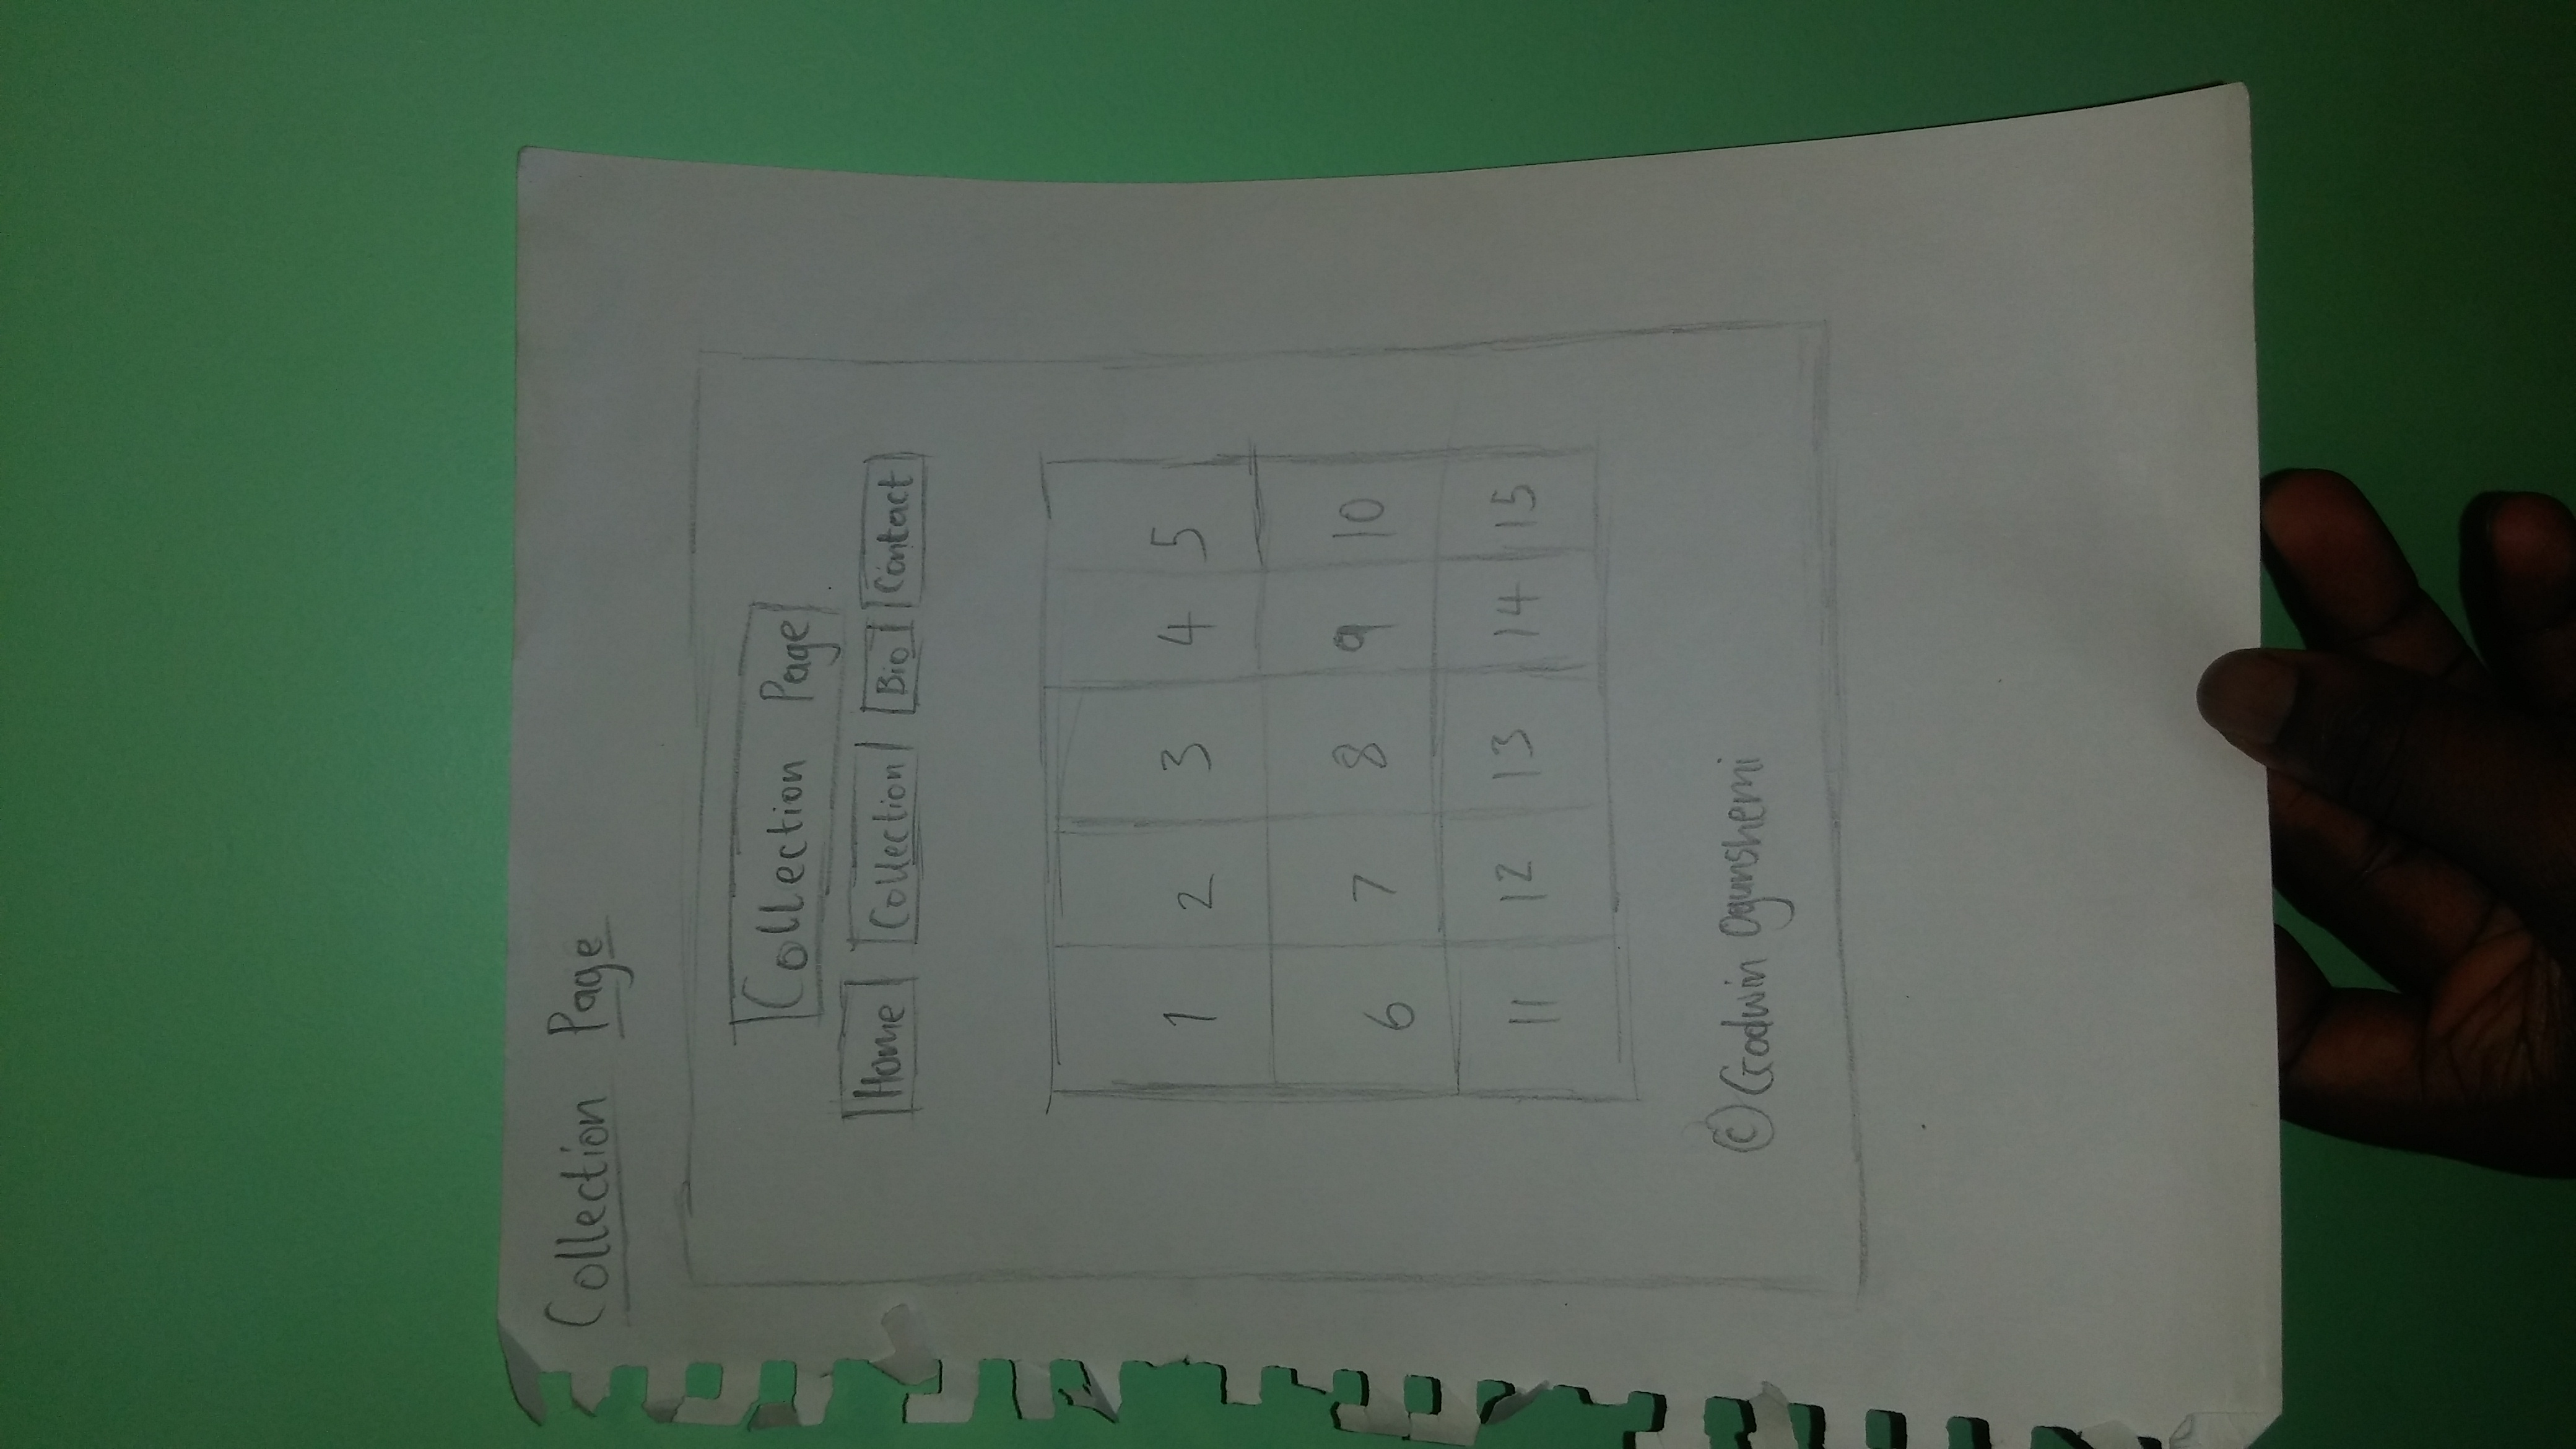 Collection Page
Collection Page
Home Collection Bio Contact
1 2 3 4 5
6 7 8 9 10
11 12 13 14 15
© Godwin Ogunshemi